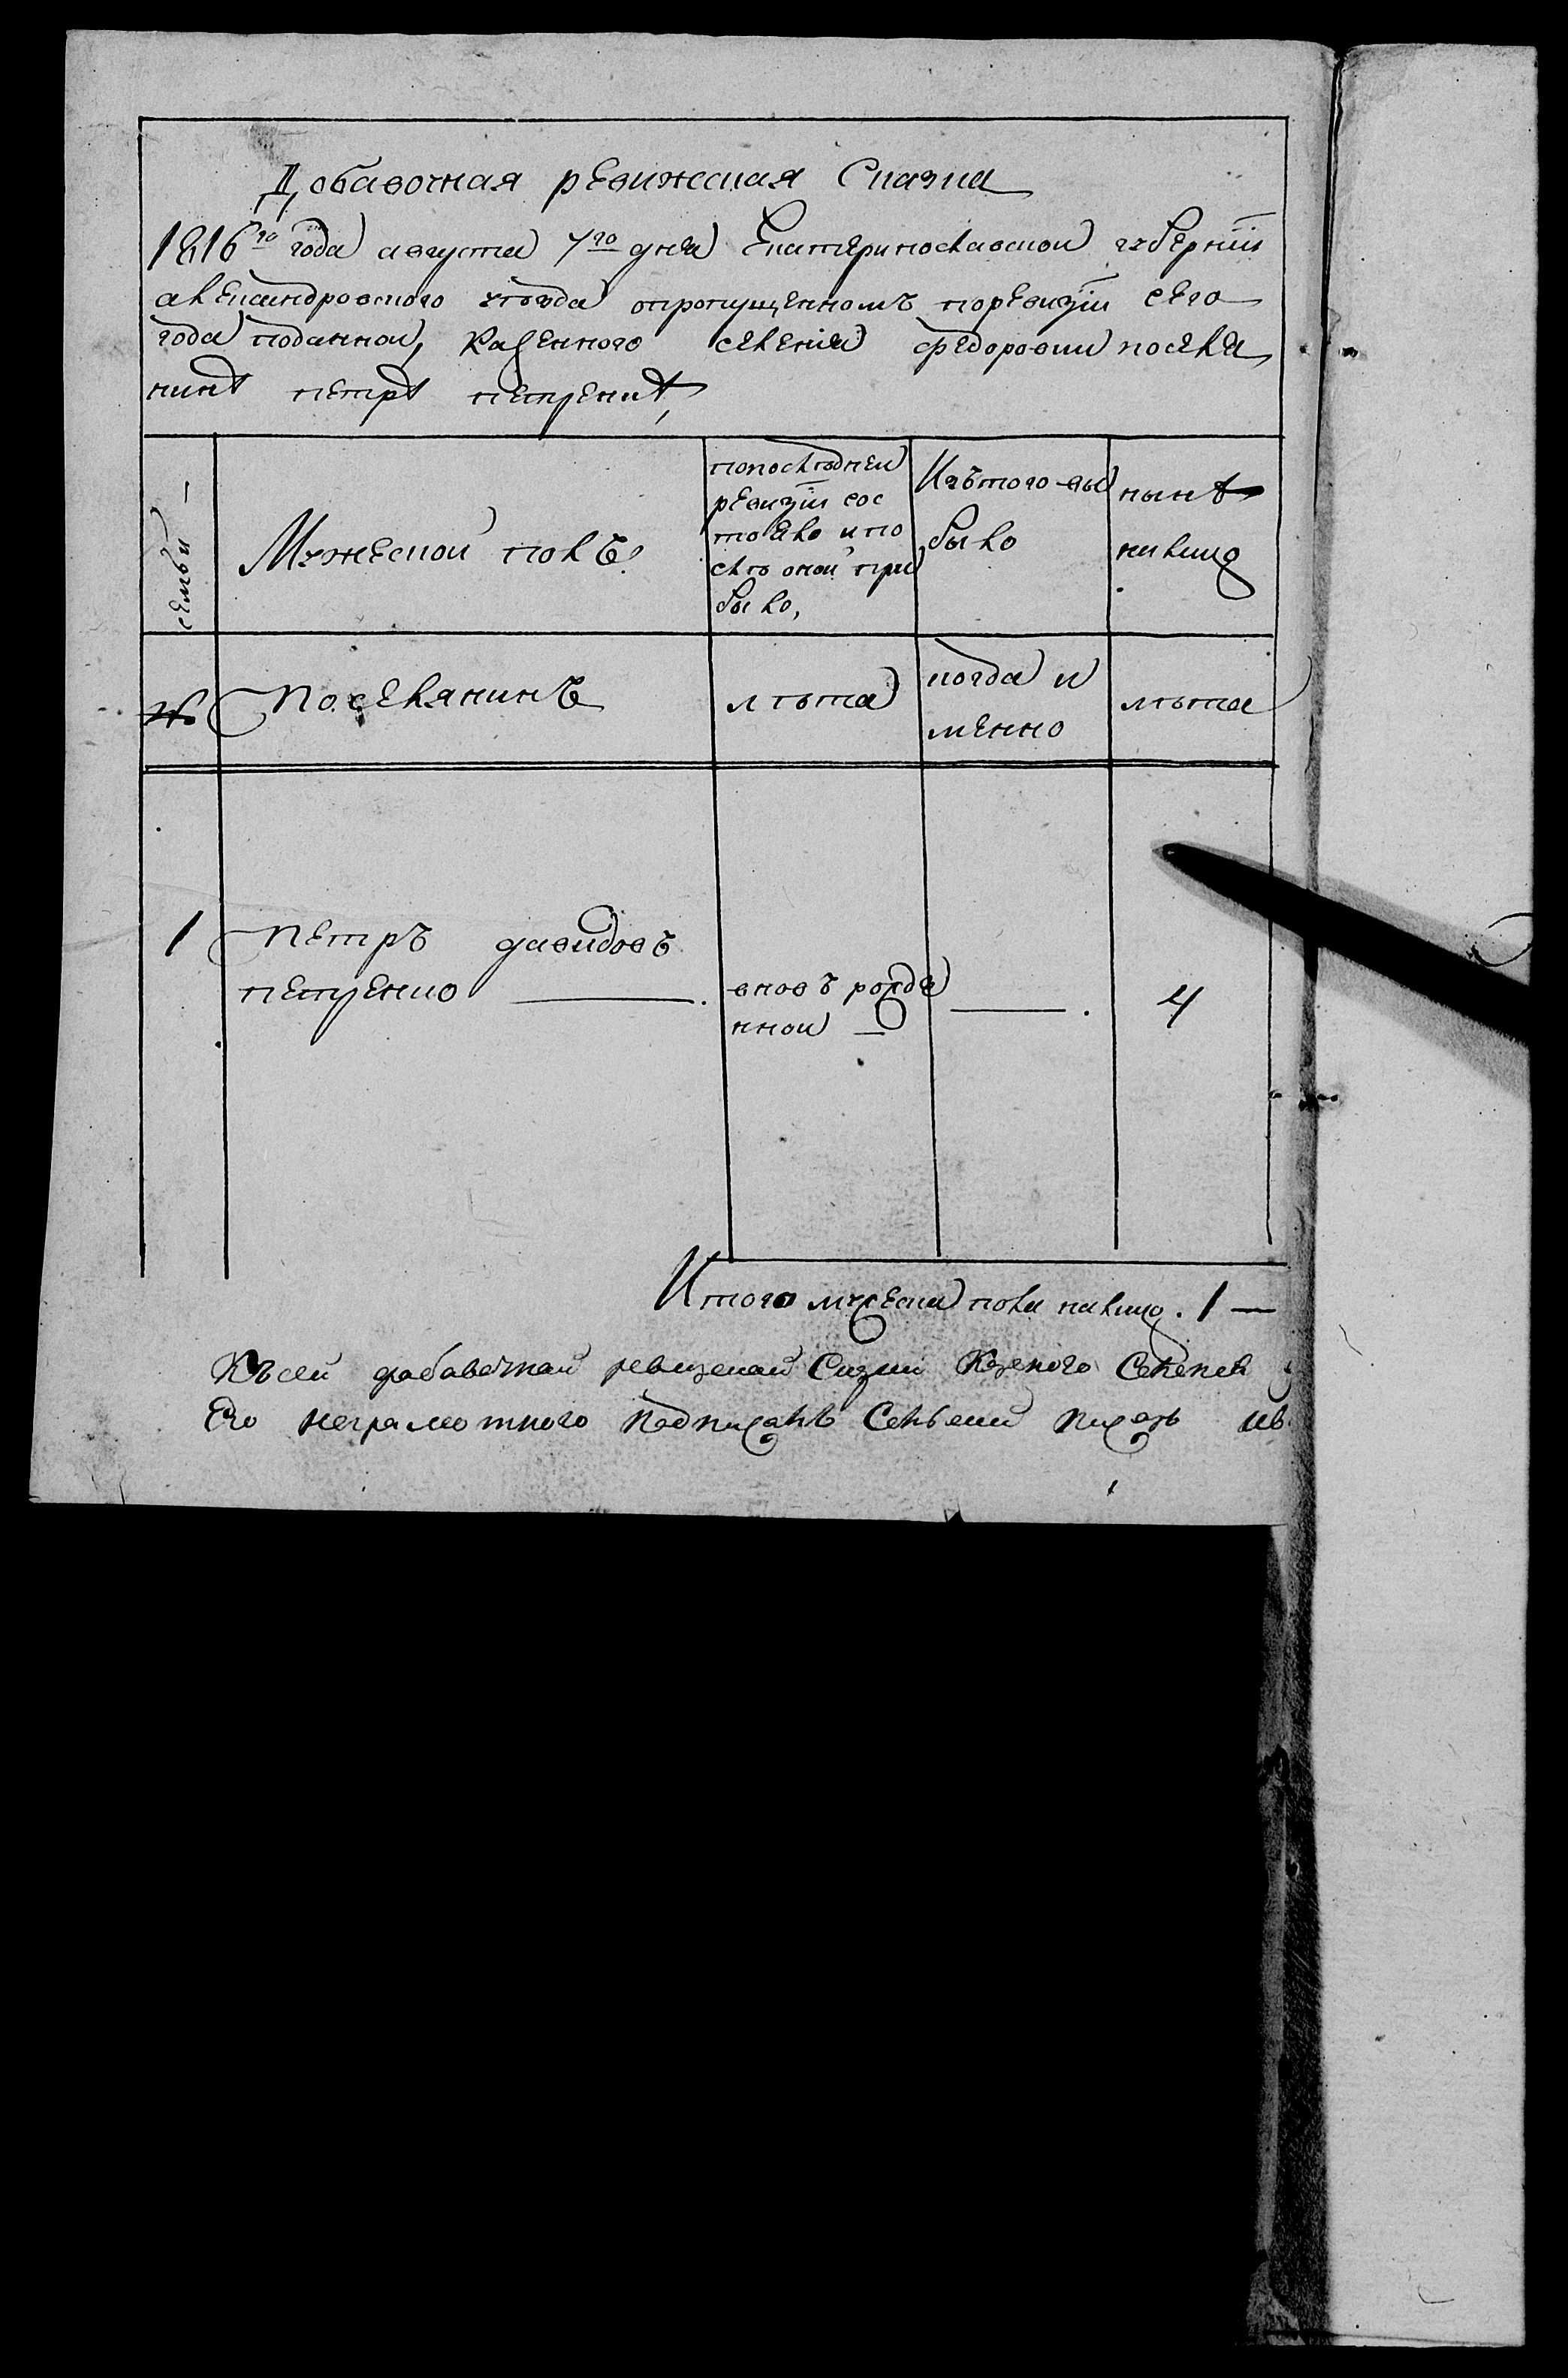 Добавочная ревижская Сказка
1816го года августа 7го дня Екатеринославской губернiи
александровского уѣзда опропущенномъ поревизiи сего
года поданной, Казенного селения федоровки поселя
нинѣ петрѣ петренкѣ,
семьи —
Мужеской полъ
попослѣдней
ревизiи сос
тояло и по
слѣ оной при
было,
Изътого вы
было
нынѣ
налицо
№
Поселянинъ
лѣта
когда и
менно
лѣта
1
Петръ давидовъ
петренко
вновъ рожде
нной
4
Итого мужеска пола налицо. 1 —
Късей добавочнай ревизскай Сказки Казеного Селения
Его неграмотного Подписалъ Селской Писарь ив